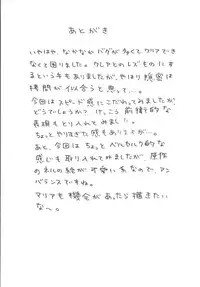 あとがき
いやはや、なかなかバグが多くて、クリアできなくて困りました。クレアとのレズものにするという手もありましたが、やはり隠密は拷問が似合うと思って…。
今回はスピード感にこだわってみましたがどうでしょうか？けっこう前衛的な表現もとり入れてみました。
ちょっとやりすぎた感もありますが…。
あと、今回はちょっとペルカル的な感じも取り入れてみましたが、原作のネルの絵が可愛い系なので、アンバランスですね。
マリアも機会があったら描きたいな～。